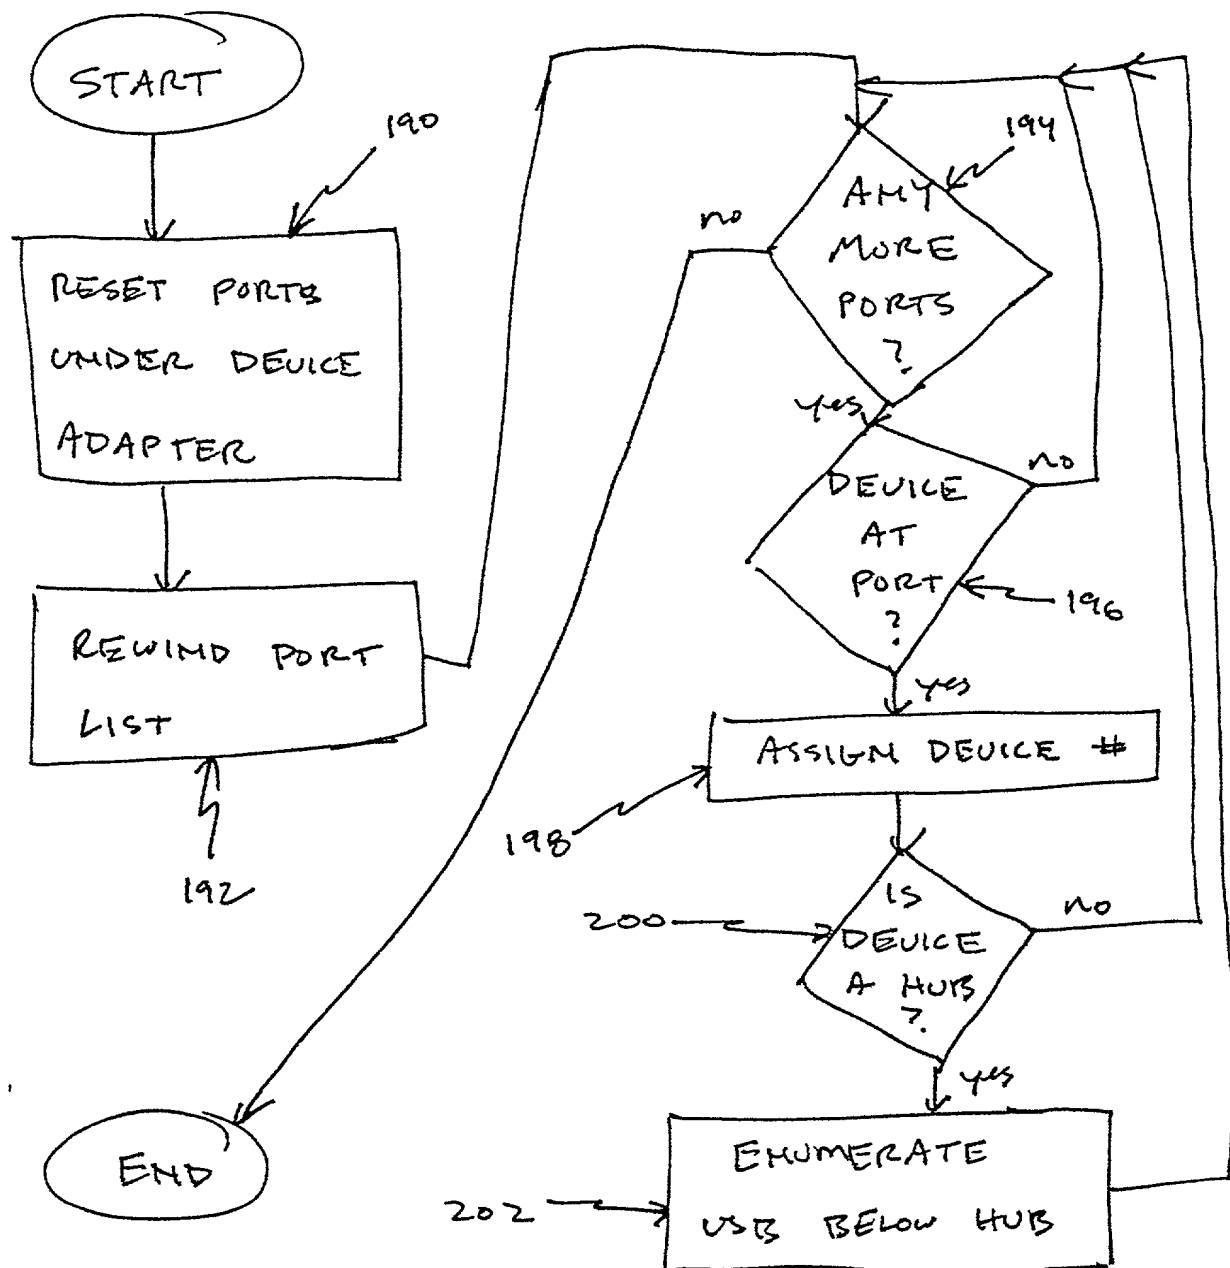 START
190
RESET PORTS
UNDER DEVICE
ADAPTER
REWIND PORT
LIST
192
END
194
ANY
MORE
PORTS
?
no
yes
DEVICE
AT
PORT
?
no
196
yes
ASSIGN DEVICE #
198
IS
DEVICE
A HUB
?
200
no
yes
ENUMERATE
USB BELOW HUB
202